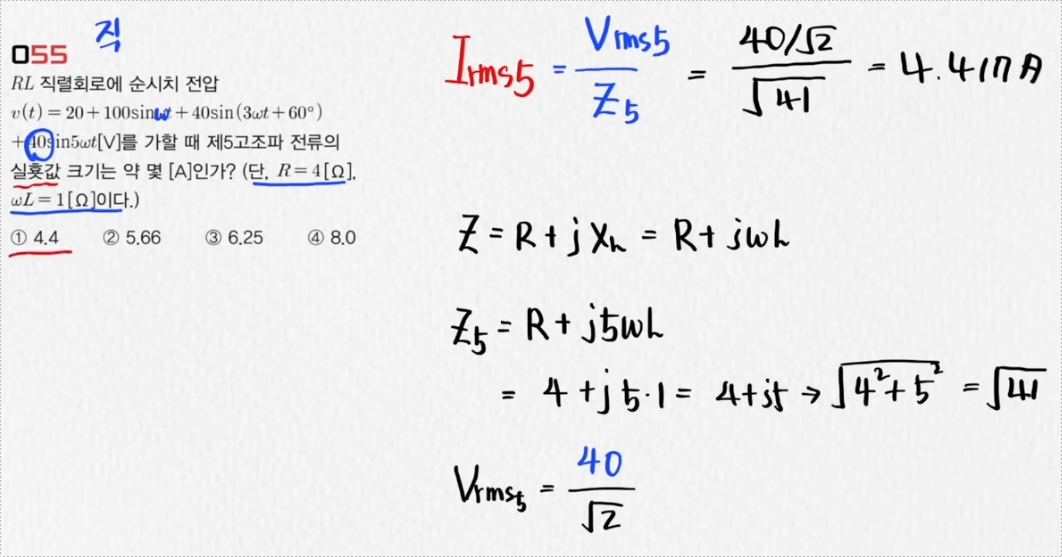 직
055
RL 직렬회로에 순시치 전압
v(t) = 20 + 100sinωt + 40sin(3ωt + 60°)
+ 40sin5ωt[V]를 가할 때 제5고조파 전류의
실횻값 크기는 약 몇 [A]인가? (단, R = 4[Ω],
ωL = 1[Ω]이다.)
① 4.4 ② 5.66 ③ 6.25 ④ 8.0
Irms5 = Vrms5 / Z5 = 40/√2 / √41 = 4.417 A
Z = R + jXL = R + jωL
Z5 = R + j5ωL
= 4 + j5·1 = 4 + j5 → √4² + 5² = √41
Vrms5 = 40 / √2